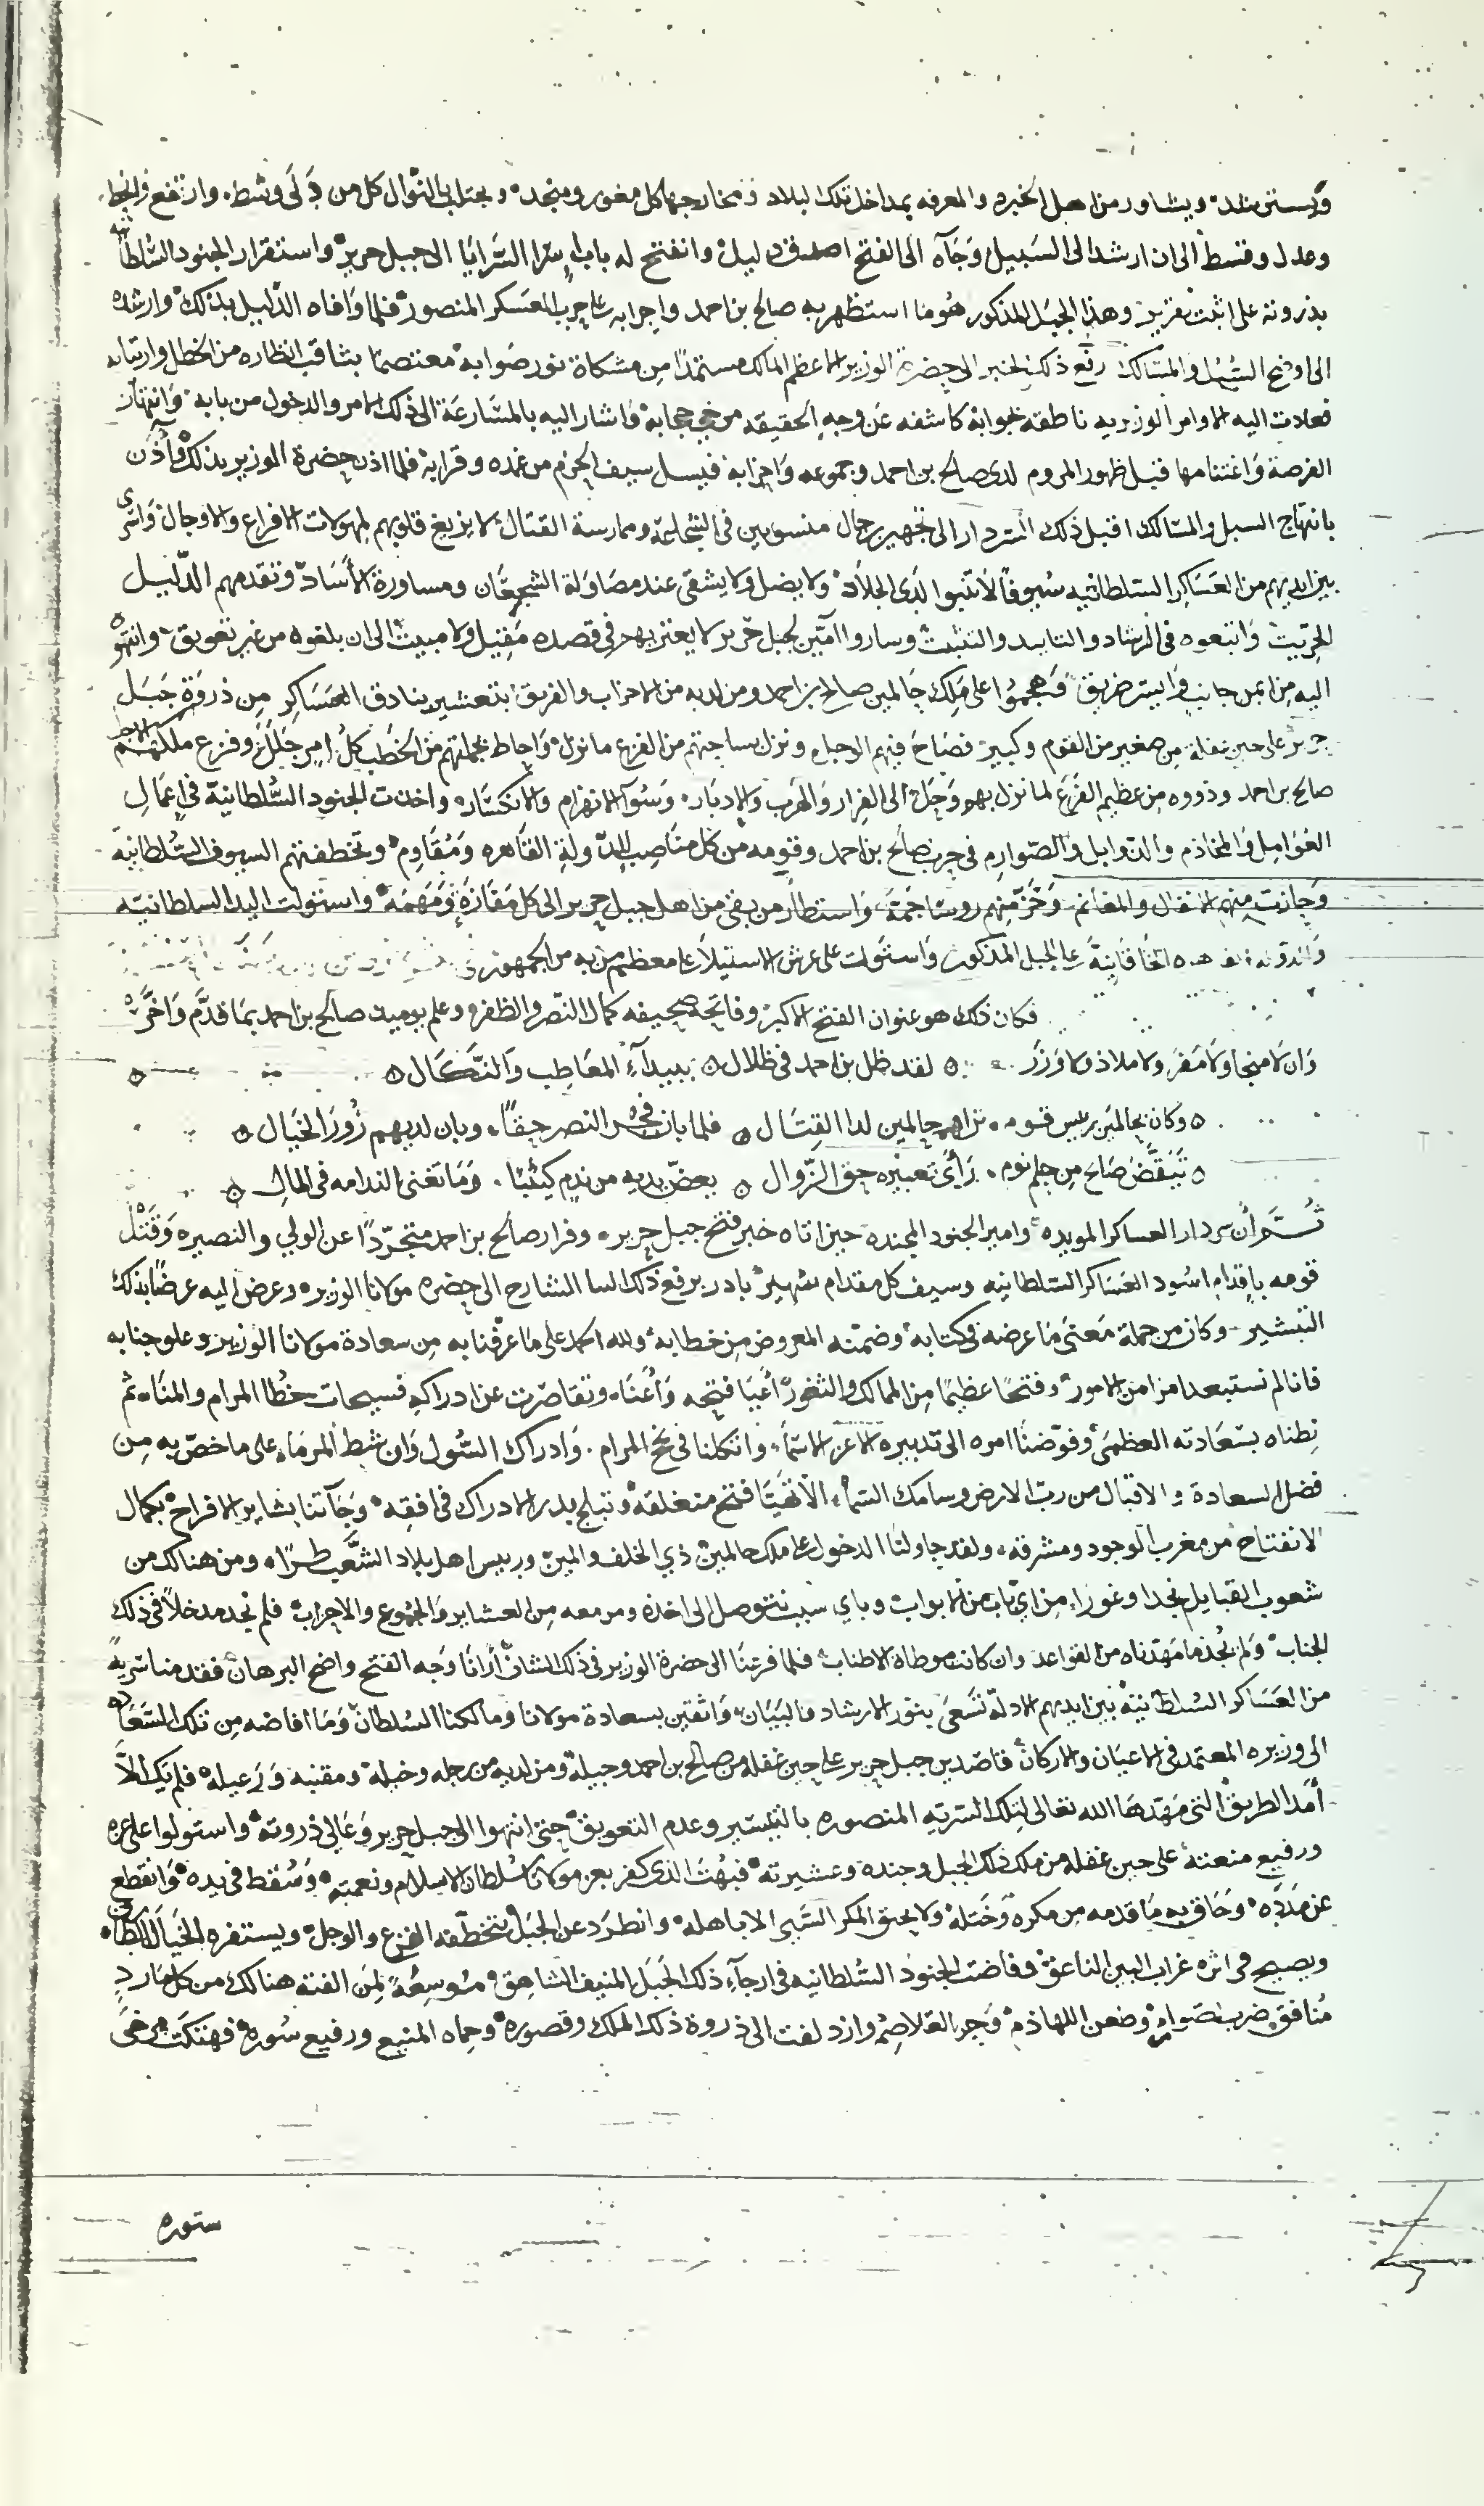 ويسترشد ويشاور من اهل الخبره والمعرفه بمداخل تلك البلاد ومخارجها كل مغور ومنجد ويجتلب بالنوال كل من دنى وشط وارتفع وانحط
وعدل وقسط الى ان ارشد الى السبيل وجآه الى الفتح اصدق دليل وانفتح له باب اسرا السرايا الى جبل حرير واستقرار الجنود السلطانيه
بذروته على اثبت تقرير وهذا الجبل المذكور هو ما استظهر به صالح بن احمد واحزابه على حرب العسكر المنصور فلما وافاه الدليل بذلك وارشده
الى اوضح السبل والمسالك رفع ذلك الخبر الى حضرة الوزير الاعظم المالك مستمدًا من مشكاة نور صوابه معتصمًا بثاقب انظاره من الخطل وارتيابه
فعادت اليه الاوامر الوزيريه ناطقه بجوابه كاشفه عن وجه الحقيقه من خفي حجابه واشار اليه بالمسارعة الى ذلك الامر والدخول من بابه وانتهاز
الفرصة واغتنامها قبل ظهور المروم لدى صالح بن احمد وجموعه واحزابه فيسل سيف الحزم من غمده وقرابه فلما اذن حضرة الوزير بذلك وأذن
بانتهاج السبل والمسالك اقبل ذلك السردار الى تجهيز رجال منسوبين في الشجاعة وممارسة القتال لا يزيغ قلوبهم لمهولات الافزاع والاوجال واسرى
بين ايديهم من العساكر السلطانيه سيوفًا لا تنبوا لدى الجلاد ولا يضل ولا يشقى عند مصاولة الشجعان ومساورة الأساد وتقدمهم الدليل
الخريت واتبعوه في الرشاد والتاييد والتثبيت وساروا آمّين لجبل حرير لا يعتريهم في قصده مقيل ولا مبيت الى ان بلغوه من غير تعويق وانتهوا
اليه من ايمن جانب وايسر طريق فهجموا على ملك حالمين صالح بن احمد ومن لديه من الاحزاب والفريق بتعشير بنادق العساكر من ذروة جبل
حرير على حين غفلة من صغير من القوم وكبير فصاح فيهم الوجل ونزل بساحتهم من الفزع ما نزل واحاط بجملتهم من الخطب كل امر جلل وفزع ملكهم الاجر
صالح بن احمد وذووه من عظيم الفزع لما نزل بهم وجل الى الفرار والهرب والادبار وسوآ الانهزام والانكسار واخذت الجنود السلطانية في اعمال
العوامل والمخاذم والذوابل والصوارم في حرب صالح بن احمد وقومه من كل مناصب للدولة القاهره ومقاوم وتخطفتهم السيوف السلطانية
وحازت منهم الانفال والمغانم وحزّ منهم روسًا جمة واستطار من بقى من اهل جبل حرير الى كل مفازة ومهمه واستولت اليد السلطانيه
والدوله القاهره الخاقانية على الجبل المذكور واستولت على عرش الاستيلآ على معظم من به من الجمهور
فكان ذلك هو عنوان الفتح الاكبر وفاتحة صحيفه كمال النصر والظفر وعلم يوميذ صالح بن احمد بما قدّم واخّر
وان لا منجا ولا مفر ولا ملاذ ولا وزر ه لقد ظل بن احمد في ظلال ه ببيدآء المعاطب والنكال ه
ه وكان بحالمين رييس قومه تراهم حالمين لدا القتال ه فلما بان فجر النصر حقًا وبان لديهم زُورُ الخيال ه
ه تيقّض صالح من حلم نوم رأى تعبيره حق الزوال ه بعضّ يديه من ندم كيئبًا وما تغنى الندامه في المال ه
ثم أن سردار العساكر المويده وامير الجنود المجنده حين اتاه خبر فتح جبل حرير وفرار صالح بن احمد متجردًا عن الولي والنصير وقتل
قومه باقدام اسود العساكر السلطانيه وسيف كل مقدام شهير بادر برفع ذلك السا الشارح الى حضره مولانا الوزير وعرض اليه عرضًا بذلك
التبشير وكان من جملة معنى ما عرضه في كتابه وضمّنه المعروض من خطابه ولله الحمد على ما عرّفنا به من سعادة مولانا الوزير وعلو جنابه
فانا لم نستبعد امرًا من الامور وفتحًا عظيمًا من الممالك والثغور أعيا فتحه وأعنا وتقاصرت عن ادراكه فسيحات خُطا المرام والمنا ثم
نطناه بسعادته العظمى وفوّضنا امره الى تدبيره الاعز الاسمآ واتكلنا في نجح المرام وادراك السول وان شط المرما على ما خصّ به من
فضل السعادة والاقبال من رب الارض وسامك السمآ الا تهيّا فتح منغلقه وتبلج بدر الادراك في افقه وجآتنا بشاير الافراح بكمال
الانفتاح من مغرب الوجود ومشرقه ولقد حاولنا الدخول على ملك حالمين ذي الخلف والمين ورييس اهل بلاد الشعيب طرًا ومن هنالك من
شعوب القبايل نجدا وغورا من اي باب من الابواب وباي سبب نتوصل الى اخذه ومن معه من العشاير والجموع والاحزاب فلم نجد مدخلاً في ذلك
الجناب ولم يُجد ما مهدناه من القواعد وان كانت موطاة الاطناب فلما فزعنا الى حضرة الوزير في ذلك الشان أرانا وجه الفتح واضح البرهان فقدمنا سريةً
من العساكر السلطانية بين ايديهم الادلة تسعى بنور الارشاد والبيان واثقين بسعادة مولانا ومالكنا السلطان وما افاضه من تلك السعادة
الى وزيره المعتمد في الاعيان والاركان قاصدين جبل حرير على حين غفله من صالح بن احمد وجيله ومن لديه من رجله وخيله ومقنبه ورعيله فلم يك الاّ
أمد الطريق التي مهّدها الله تعالى لتلك السريه المنصوره بالتيسير وعدم التعويق حتى انتهوا الى جبل حرير وعالي ذروته واستولوا على عره
ورفيع منعته على حين غفله من ملك ذلك الجبل وجنده وعشيرته فبُهت الذي كفر بعز مولانا سلطان الاسلام ونعمته وسُقط في يده وانقطع
عن مَدَدِه وحاق به ما قدمه من مكره وختله ولا يحيق المكر السّيئ الا باهله وانطرد عن الجبل تتخطفه الفزع والوجل ويستفزه الخيال الكاذب
ويصيح في اثره غراب البين الناعق وفاضت الجنود السلطانيه في ارجآء ذلك الجبل المنيف الشاهق مُوسِعُةً لمن الفته هنالك من كل مارد
منافق ضرب الصوارم وضعن اللهاذم وجز الغلاصم وازدلفت الى ذروة ذلك الملك وقصوره وحِماه المنيع ورفيع سُوره فهتكت مرخى
ستوره